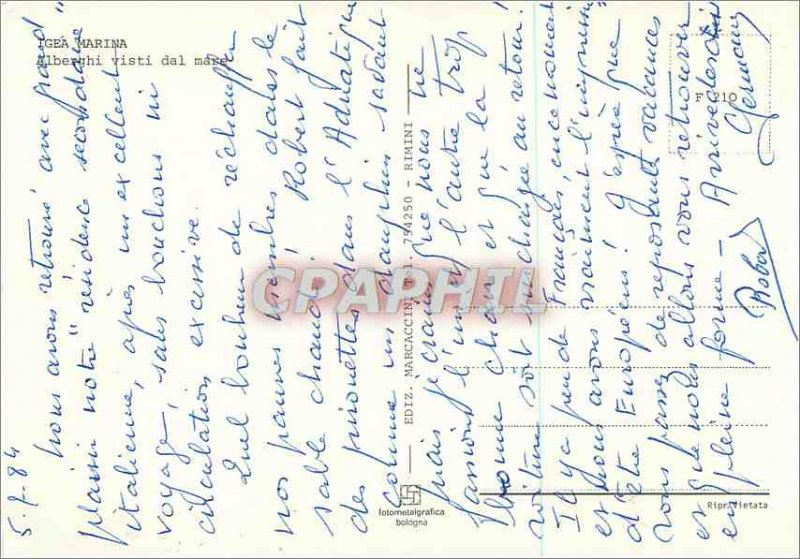 IGEA MARINA
Alberghi visti dal mare
F 210
EDIZ. MARCACCINI T . . 754250 - RIMINI
fotometalgrafica
bologna
Ripr. vietata
CPARAPHIL
5.7.84
nous avons retrouvé avec grand
plaisir notre "résidence secondaire"
italienne, après un excellent
voyage, sans bouchons ni
circulation excessive.
Quel bonheur de réchauffer
nos pauvres membres dans le
sable chaud! Robert fait
des pirouettes dans l'Adriatique
comme un dauphin sautant
mais je crains que nous ne
fassions l'un et l'autre trop
bonne chair et que la
voiture soit surchargée au retour!
Il y a peu de Français, en ce moment
et nous avons vraiment l'impression
d'être Européens! J'espère que
vous passez de reposantes vacances
et que nous allons vous retrouver
en pleine forme - Arrivederci
Robert Germany